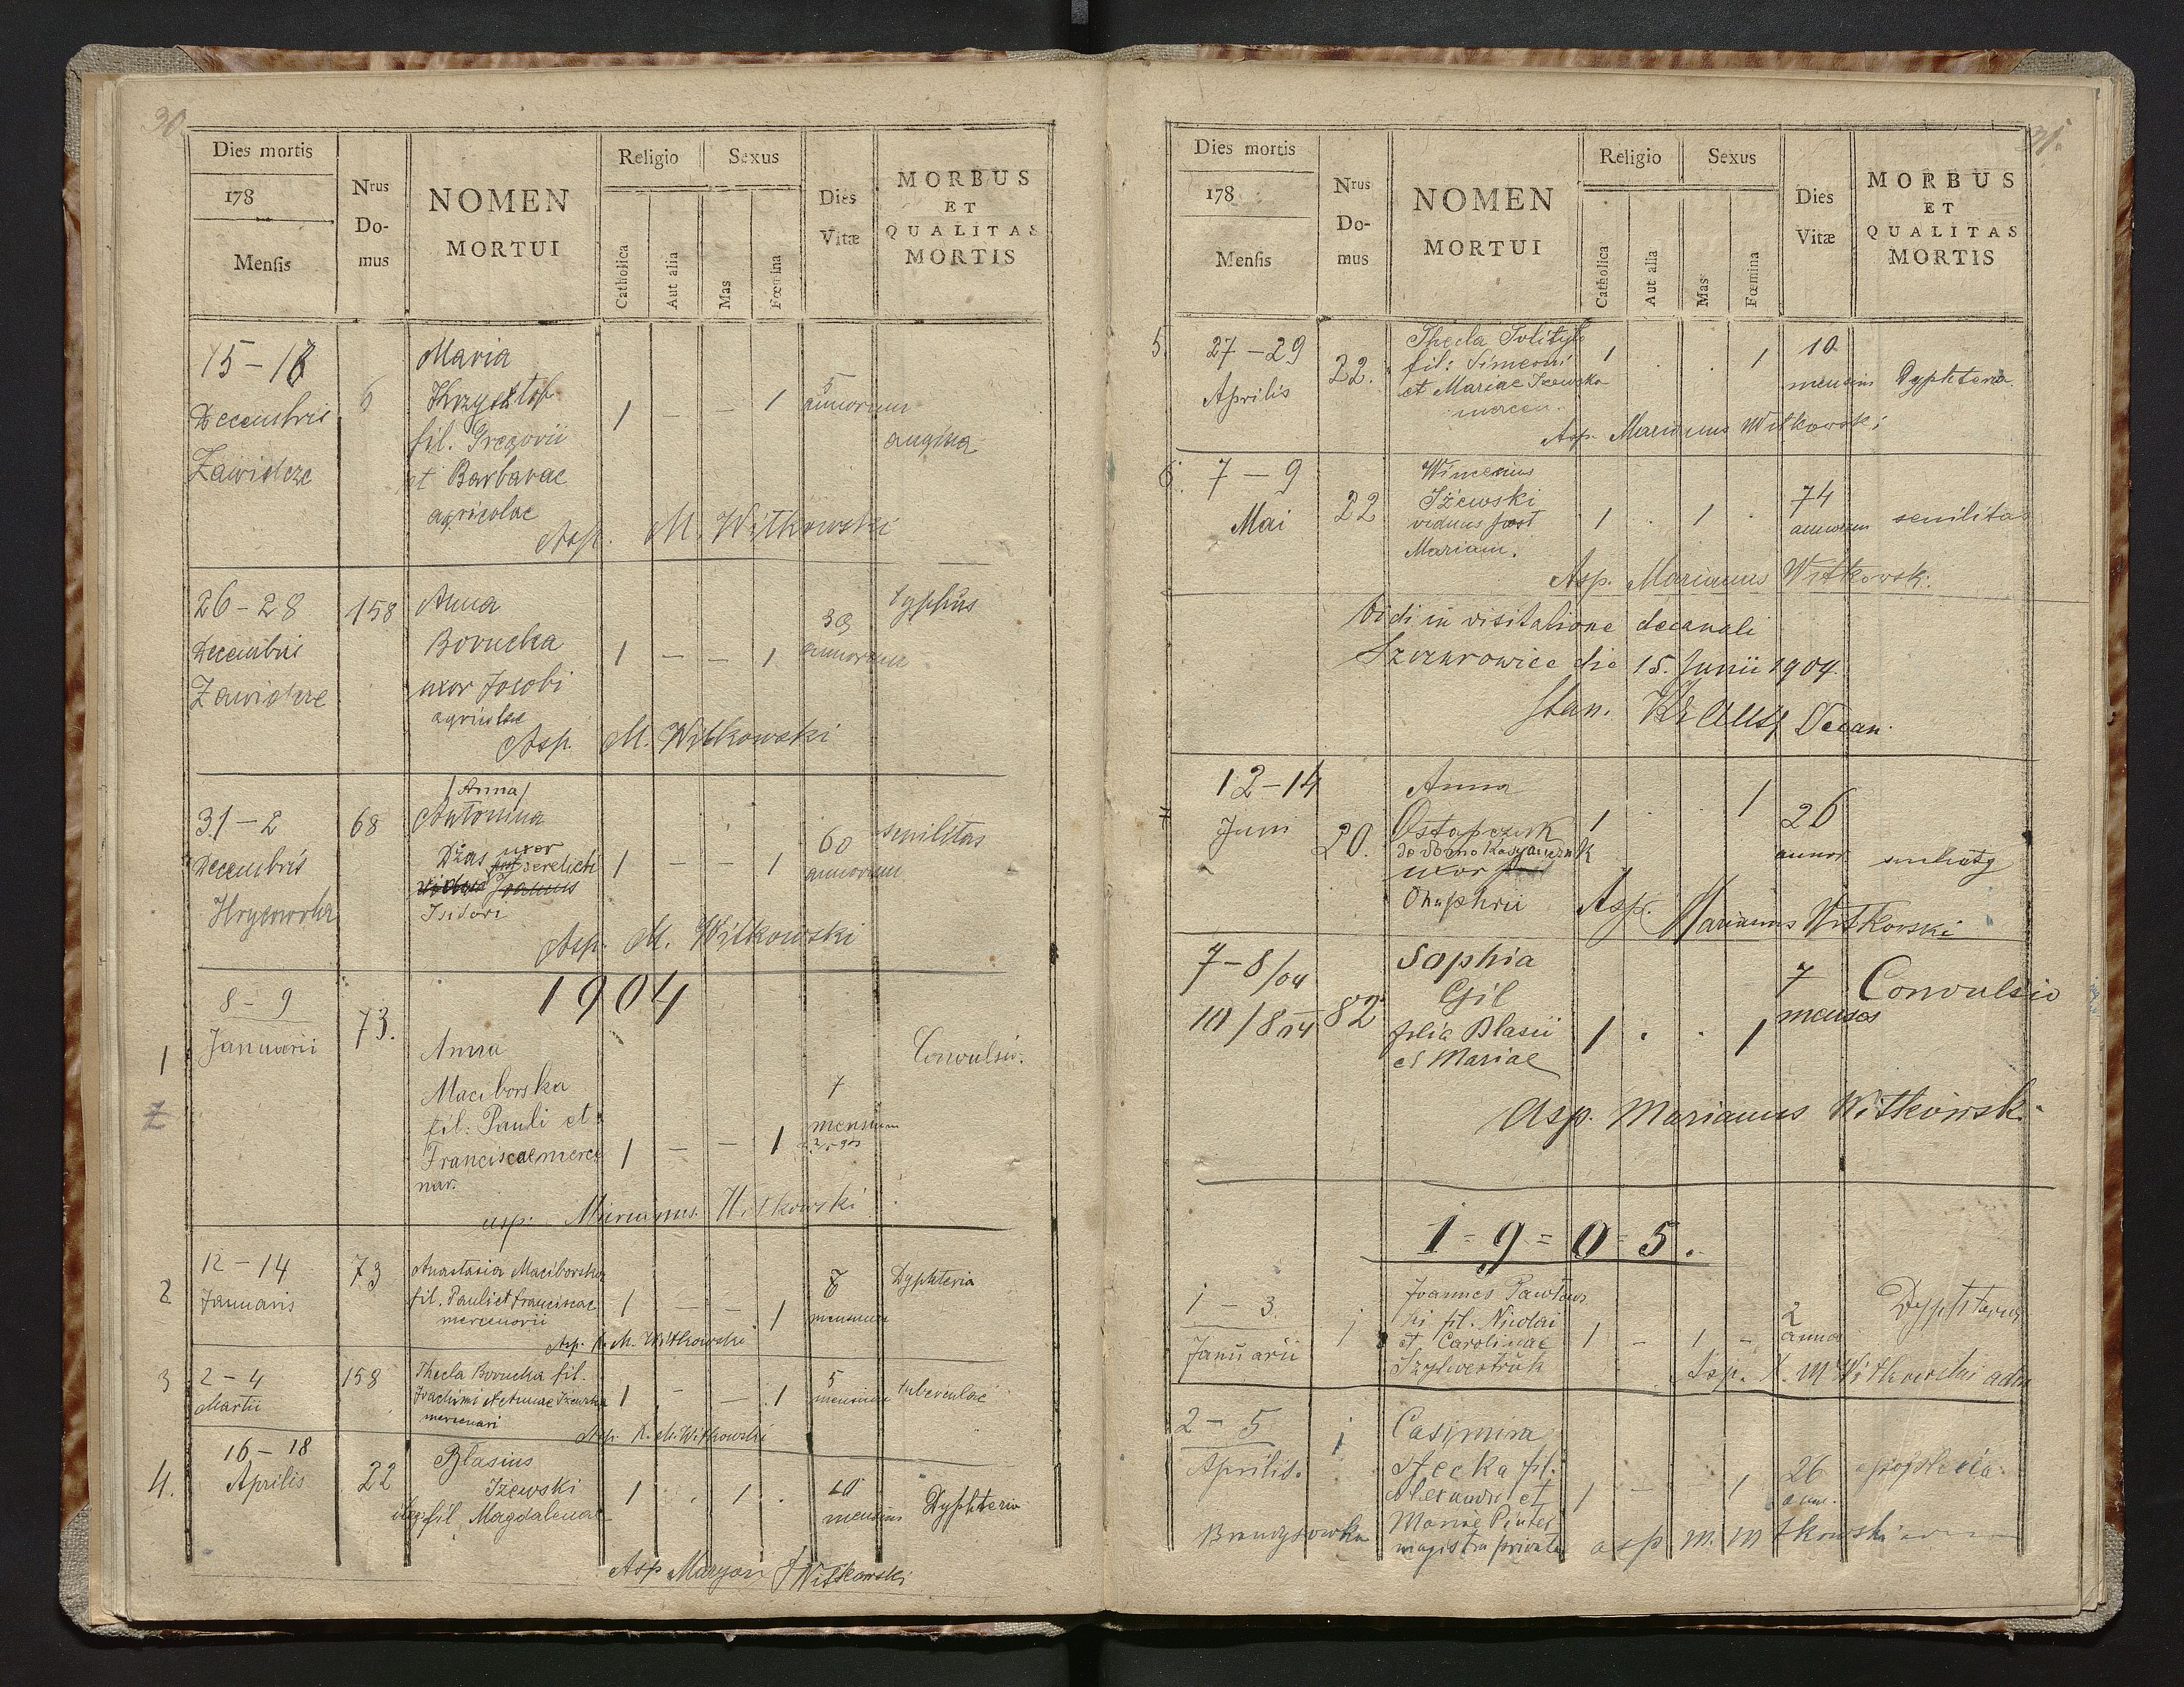 30.
Dies mortis
178
Mensis
Nrus
Do-
mus
NOMEN
MORTUI
Religio
Sexus
Catholica
Aut alia
Mas
Fœmina
Dies
Vitæ
MORBUS
ET
QUALITAS
MORTIS
15-17
Decembris
Zawidcze
6
Maria
Krzysztof
fil. Gregorii
et Barbarae
agricolae
1 — — 1
5
annorum
angina
Asp. M. Witkowski
26-28
Decembris
Zawidcze
158
Anna
Borucka
uxor Jacobi
agricolae
1 — — 1
39
annorum
typhus
Asp. M. Witkowski
31-2
Decembris
Hrycowola
68
/Anna/
Antonina
Dżas uxor
derelicti
vidua Joannis
Isidori
1 — — 1
60
annorum
senilitas
Asp. M. Witkowski
1904
1
8-9
Januarii
73.
Anna
Maciborska
fil: Pauli et
Franciscae merce
nar.
1 — — 1
7
mensium
Convulsio.
asp. Marianus Witkowski
2
12-14
Januaris
73
Anastasia Maciborska
fil. Pauli et Franciscae
mercenarii
1 — — 1
8
mensium
Dyphteria
Asp. X. M. Witkowski
3
2-4
Martii
158
Thecla Borucka fil.
Joachimi et Annae
mercenari
1 - — 1
5
mensium
tuberculae
Asp. X. M. Witkowski
4.
16-18
Aprilis
22
Blasius
Iżewski
illeg fil Magdalenae
1 . 1 .
10
mensium
Dyphteria
Asp Maryan J Witkowski
31.
Dies mortis
178
Mensis
Nrus
Do-
mus
NOMEN
MORTUI
Religio
Sexus
Catholica
Aut alia
Mas
Fœmina
Dies
Vitæ
MORBUS
ET
QUALITAS
MORTIS
5.
27-29
Aprilis
22.
Thecla
fil: Simeoni
et Mariae
mercen.
1 . . 1
10
mensium
Dyphteria
Asp. Marianus Witkowski
6.
7-9
Mai
22
Wincenius
Iżewski
viduus post
Mariam.
1 . 1 .
74
annorum
senilitas
Asp. Marianus Witkowski
Vidi in visitatione decanali
Szczurowice die 15. Junii 1904.
Stan. Decan.
7
12-14
Juni
20.
Anna
Ostapczuk
de domo
uxor post
Onuphrii
1 . . 1
26
annor.
Asp. Marianus Witkowski
7-8/04
10/8 04
82
Sophia
Gil
filia Blasii
et Mariae
1 . . 1
7
menses
Convulsio
Asp. Marianus Witkowski
1=9=0=5.
1-3.
Januarii
1
Joannes
fil. Nicolai
et Carolinae
1 - 1 -
2
annos
Dyphteria
Asp. X. M Witkowski adm
2-5
Aprilis.
1
Casimira
Stecka fil.
Alexandri et
Mariae
magistra privata
1 — — 1
26
ann.
asp M. Witkowski